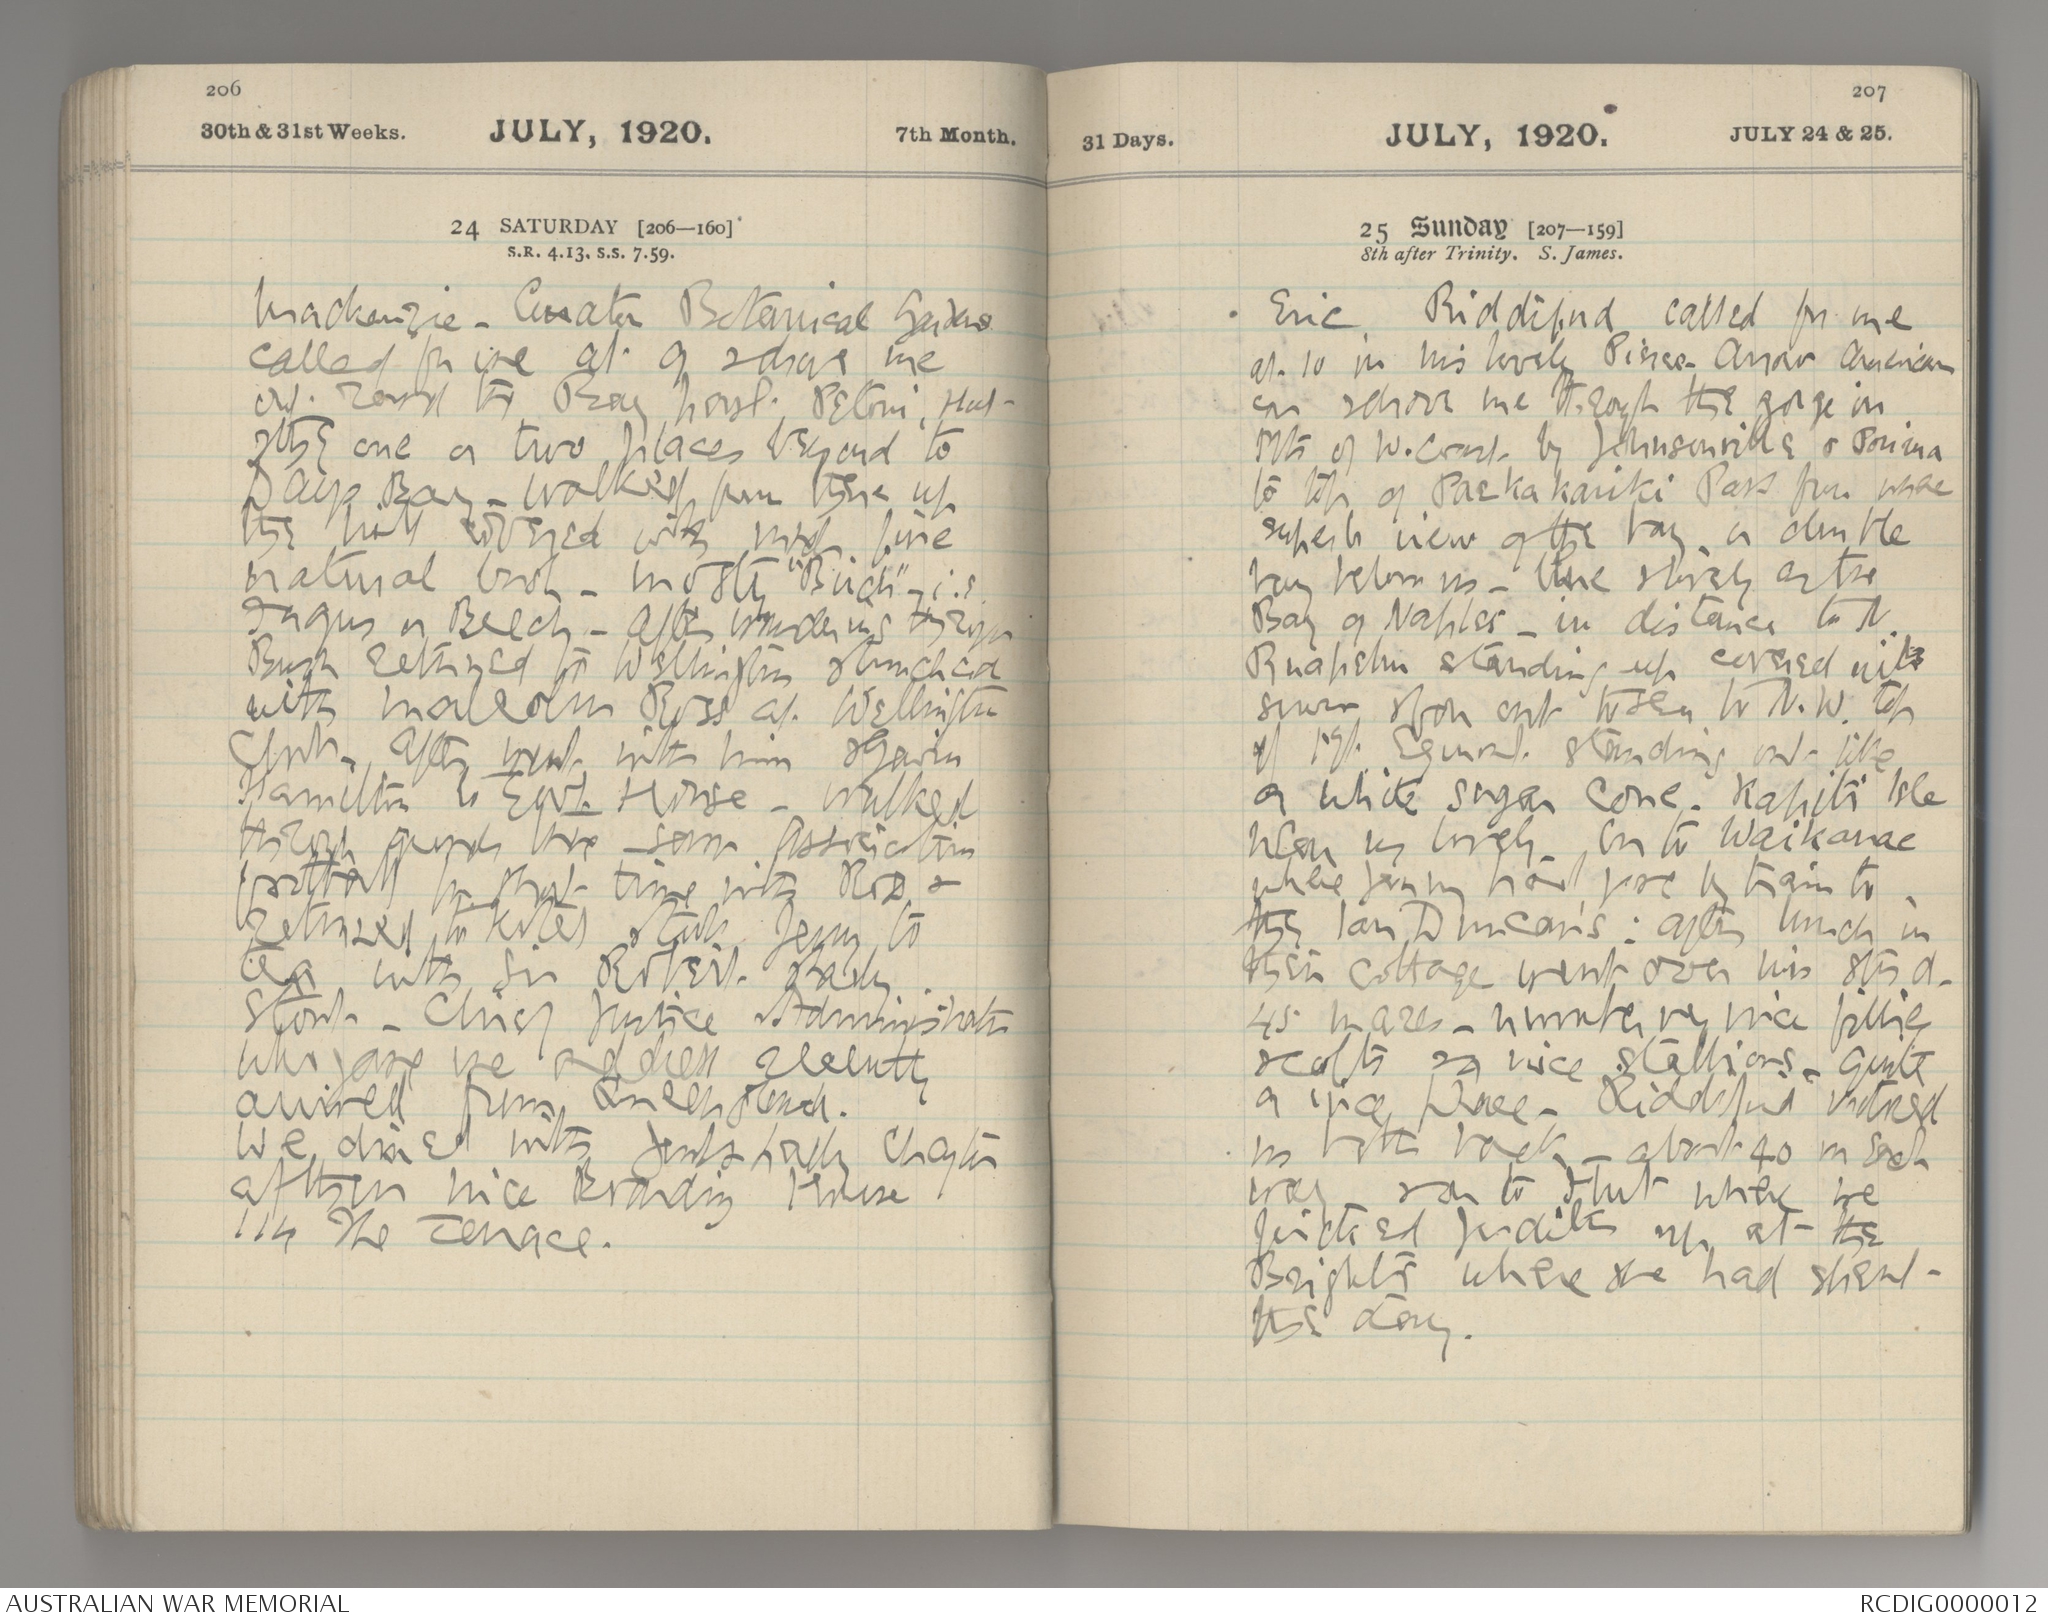 206
30th & 31st Weeks. JULY, 1920. 7th Month.
24 SATURDAY [206—160]
S.R. 4.13, S.S. 7.59.
Mackenzie – Curator Botanical Gardens
called for me at 9 & drove me
out round the Bay past Petoni, Hut-
& the one or two places beyond to
Days Bay – walked from there up
the hill covered with most fine
natural bush – mostly "Birch" – i.e.
Fagus or Beech – After wandering through
Bush returned to Wellington & lunched
with Malcolm Ross at Wellington
Club – After went with him & Gavin
Hamilton to Govt House – walked
through grounds there saw Association
football for short time with Ross &
returned to Hotel & took Jenny to
tea with Sir Robert & Lady
Stout – Chief Justice & Administrator
who gave me address recently
arrived from
We dined with Chaytor
at their nice Boarding House
114 The Terrace.
207
31 Days. JULY, 1920. JULY 24 & 25.
25 Sunday [207—159]
8th after Trinity. S. James.
Eric Riddiford called for me
at 10 in his lovely Pierce Arrow American
car & drove me through the gorge in
Mts of W. Coast by Johnsonville & Porirua
to top of Paekakariki Pass from where
superb view of the bay, a double
bay below us – blue & lovely as the
Bay of Naples – in distance to N.
Ruapehu standing up covered with
snow & from out to sea to N.W. top
of Mt. Egmont standing out like
a white sugar cone – Kapiti Isle
near us lovely. On to Waikanae
where Jenny had gone by train to
the Ian Duncan's: after lunch in
their cottage went over his stud –
45 mares – number very nice fillies
& colts & nice stallions – Quite
a nice place – Riddiford motored
us both back – about 40 m each
way – ran to Hutt where we
picked Judith up at the
Brights where she had spent
the day.
AUSTRALIAN WAR MEMORIAL
RCDIG0000012